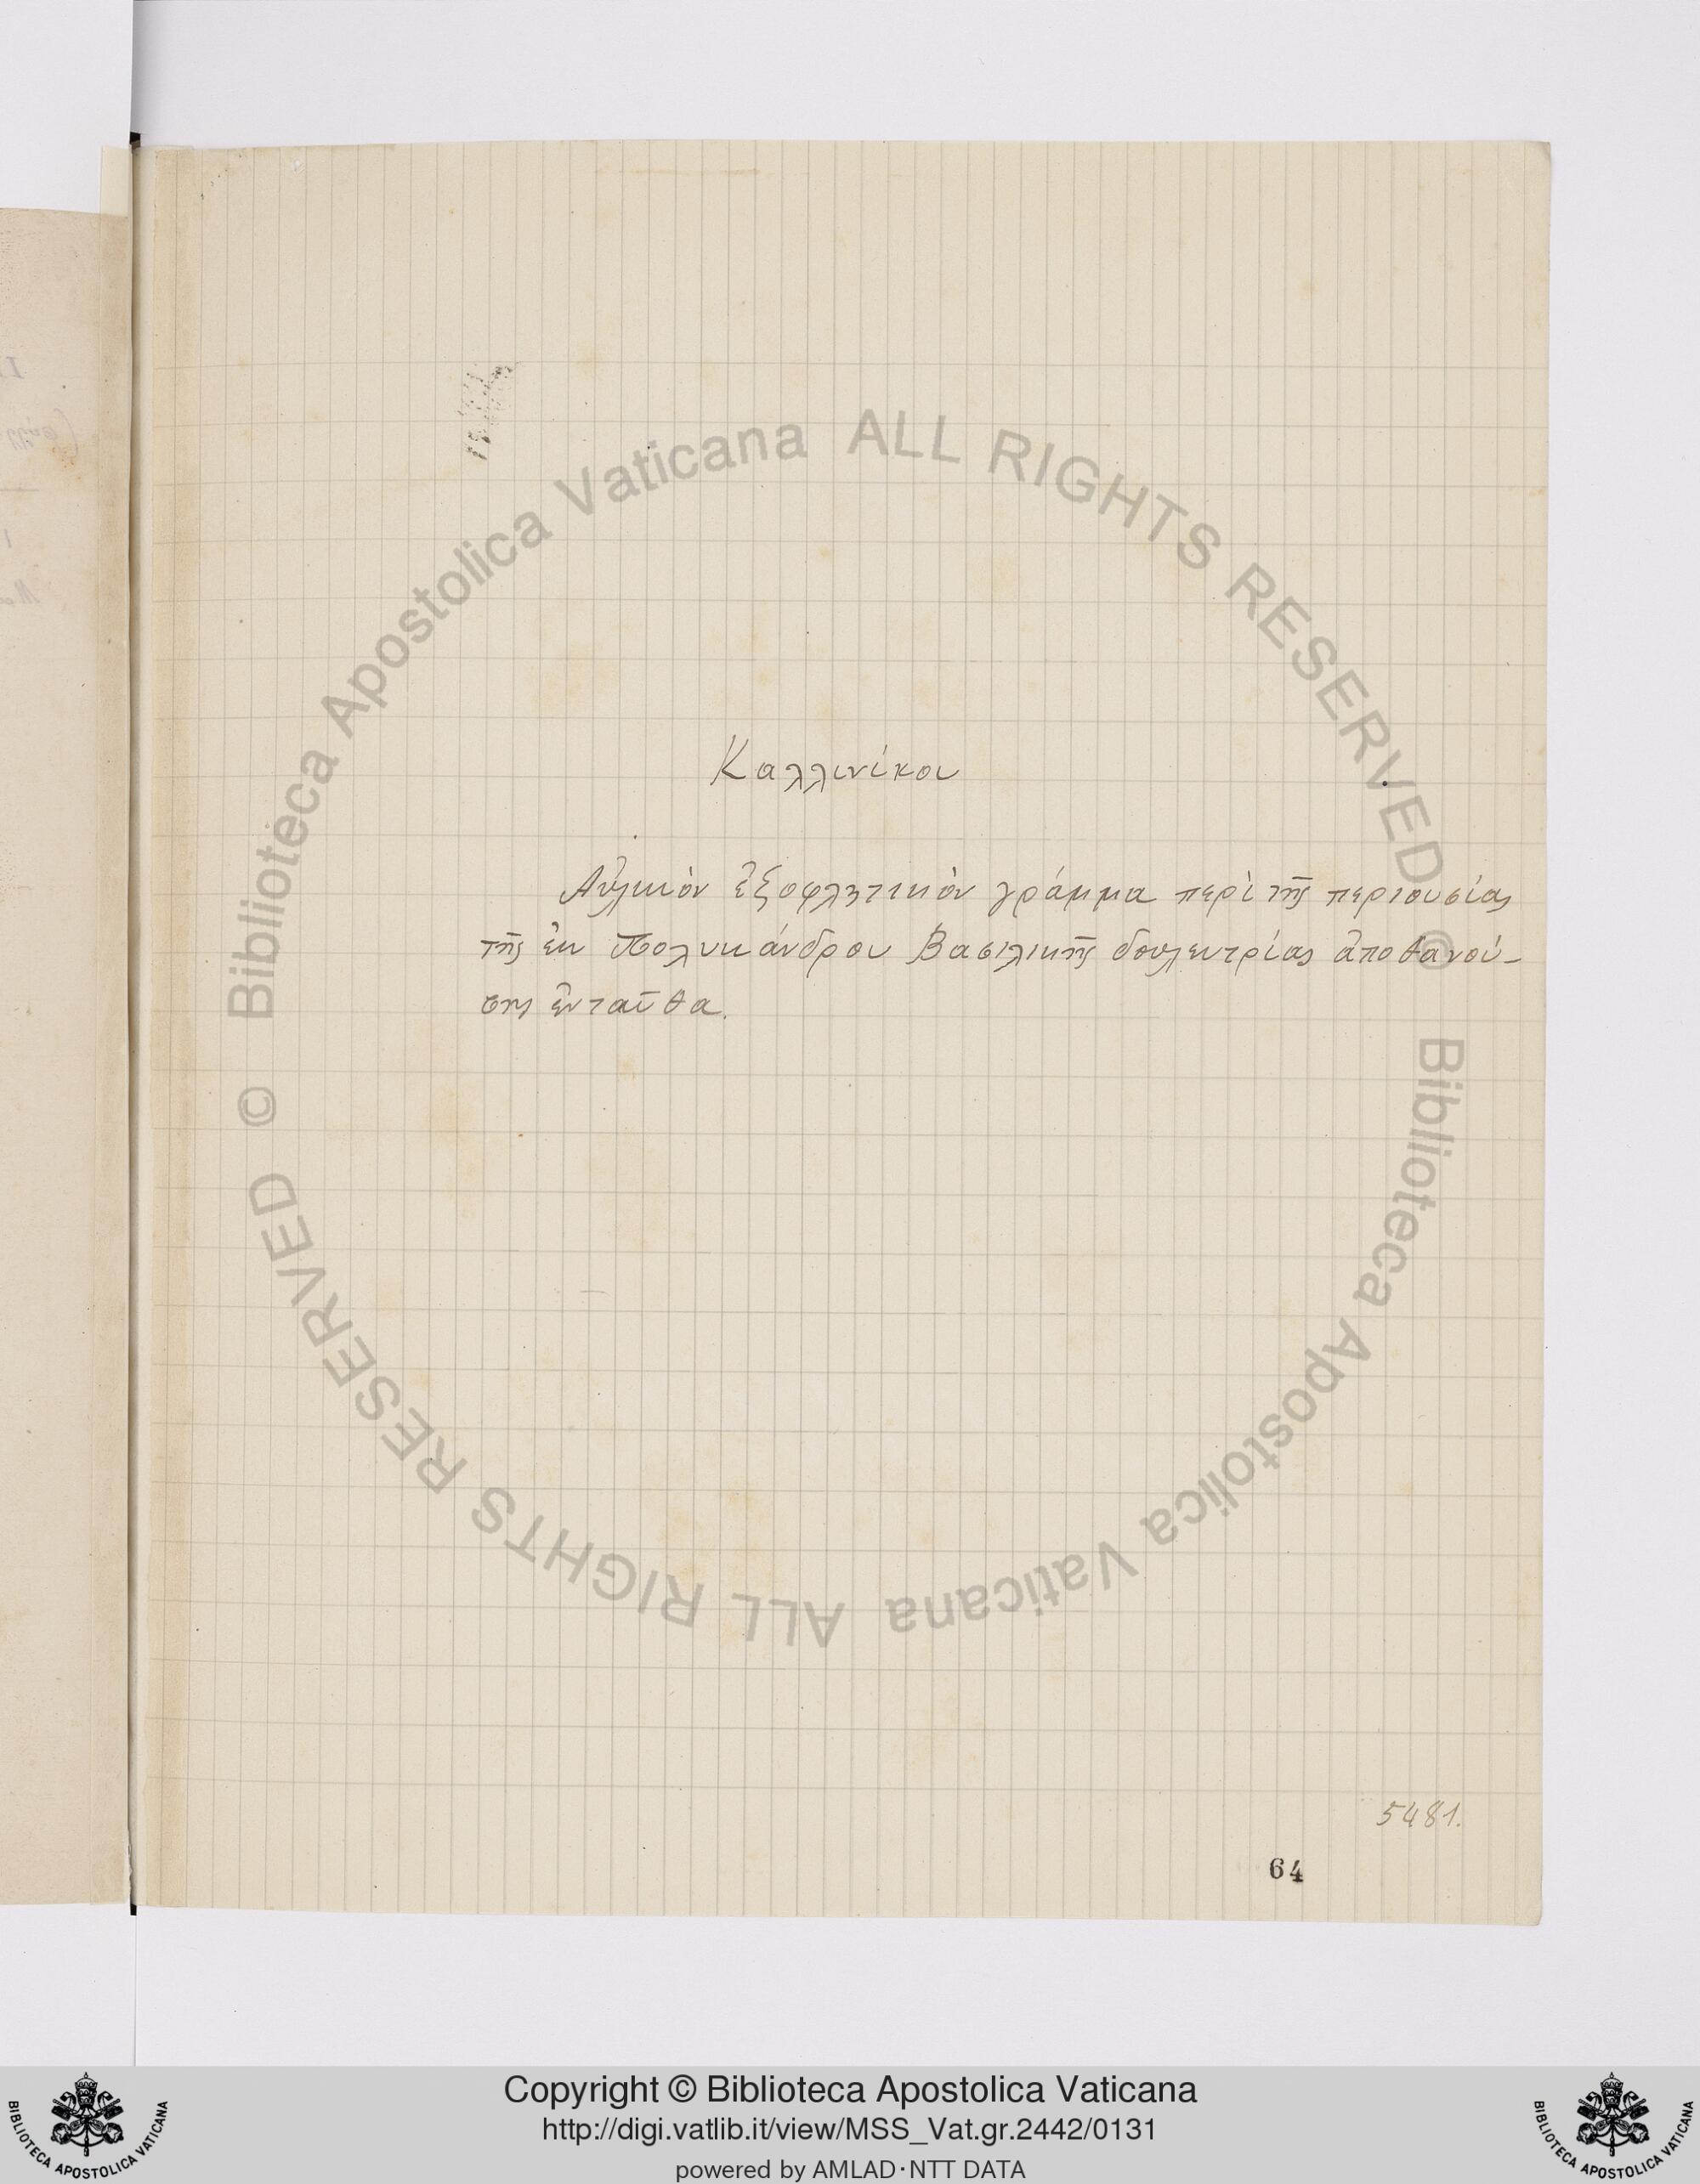 Καλλινίκου
Αὐλικὸν ἐξοφλητικὸν γράμμα περὶ τῆς περιουσίας
τῆς ἐκ Πολυκάνδρου Βασιλικῆς δουλευτρίας ἀποθανού-
σης ἐνταῦθα.
5481.
64
© Biblioteca Apostolica Vaticana ALL RIGHTS RESERVED
© Biblioteca Apostolica Vaticana ALL RIGHTS RESERVED
Copyright © Biblioteca Apostolica Vaticana
http://digi.vatlib.it/view/MSS_Vat.gr.2442/0131
powered by AMLAD·NTT DATA
BIBLIOTECA APOSTOLICA VATICANA
BIBLIOTECA APOSTOLICA VATICANA